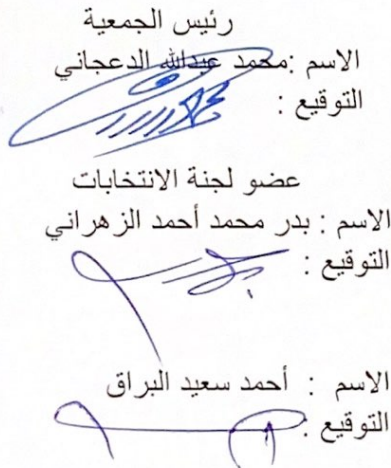 رئيس الجمعية
الاسم :محمد عبدالله الدعجاني
التوقيع :
عضو لجنة الانتخابات
الاسم : بدر محمد أحمد الزهراني
التوقيع :
الاسم : أحمد سعيد البراق
التوقيع :